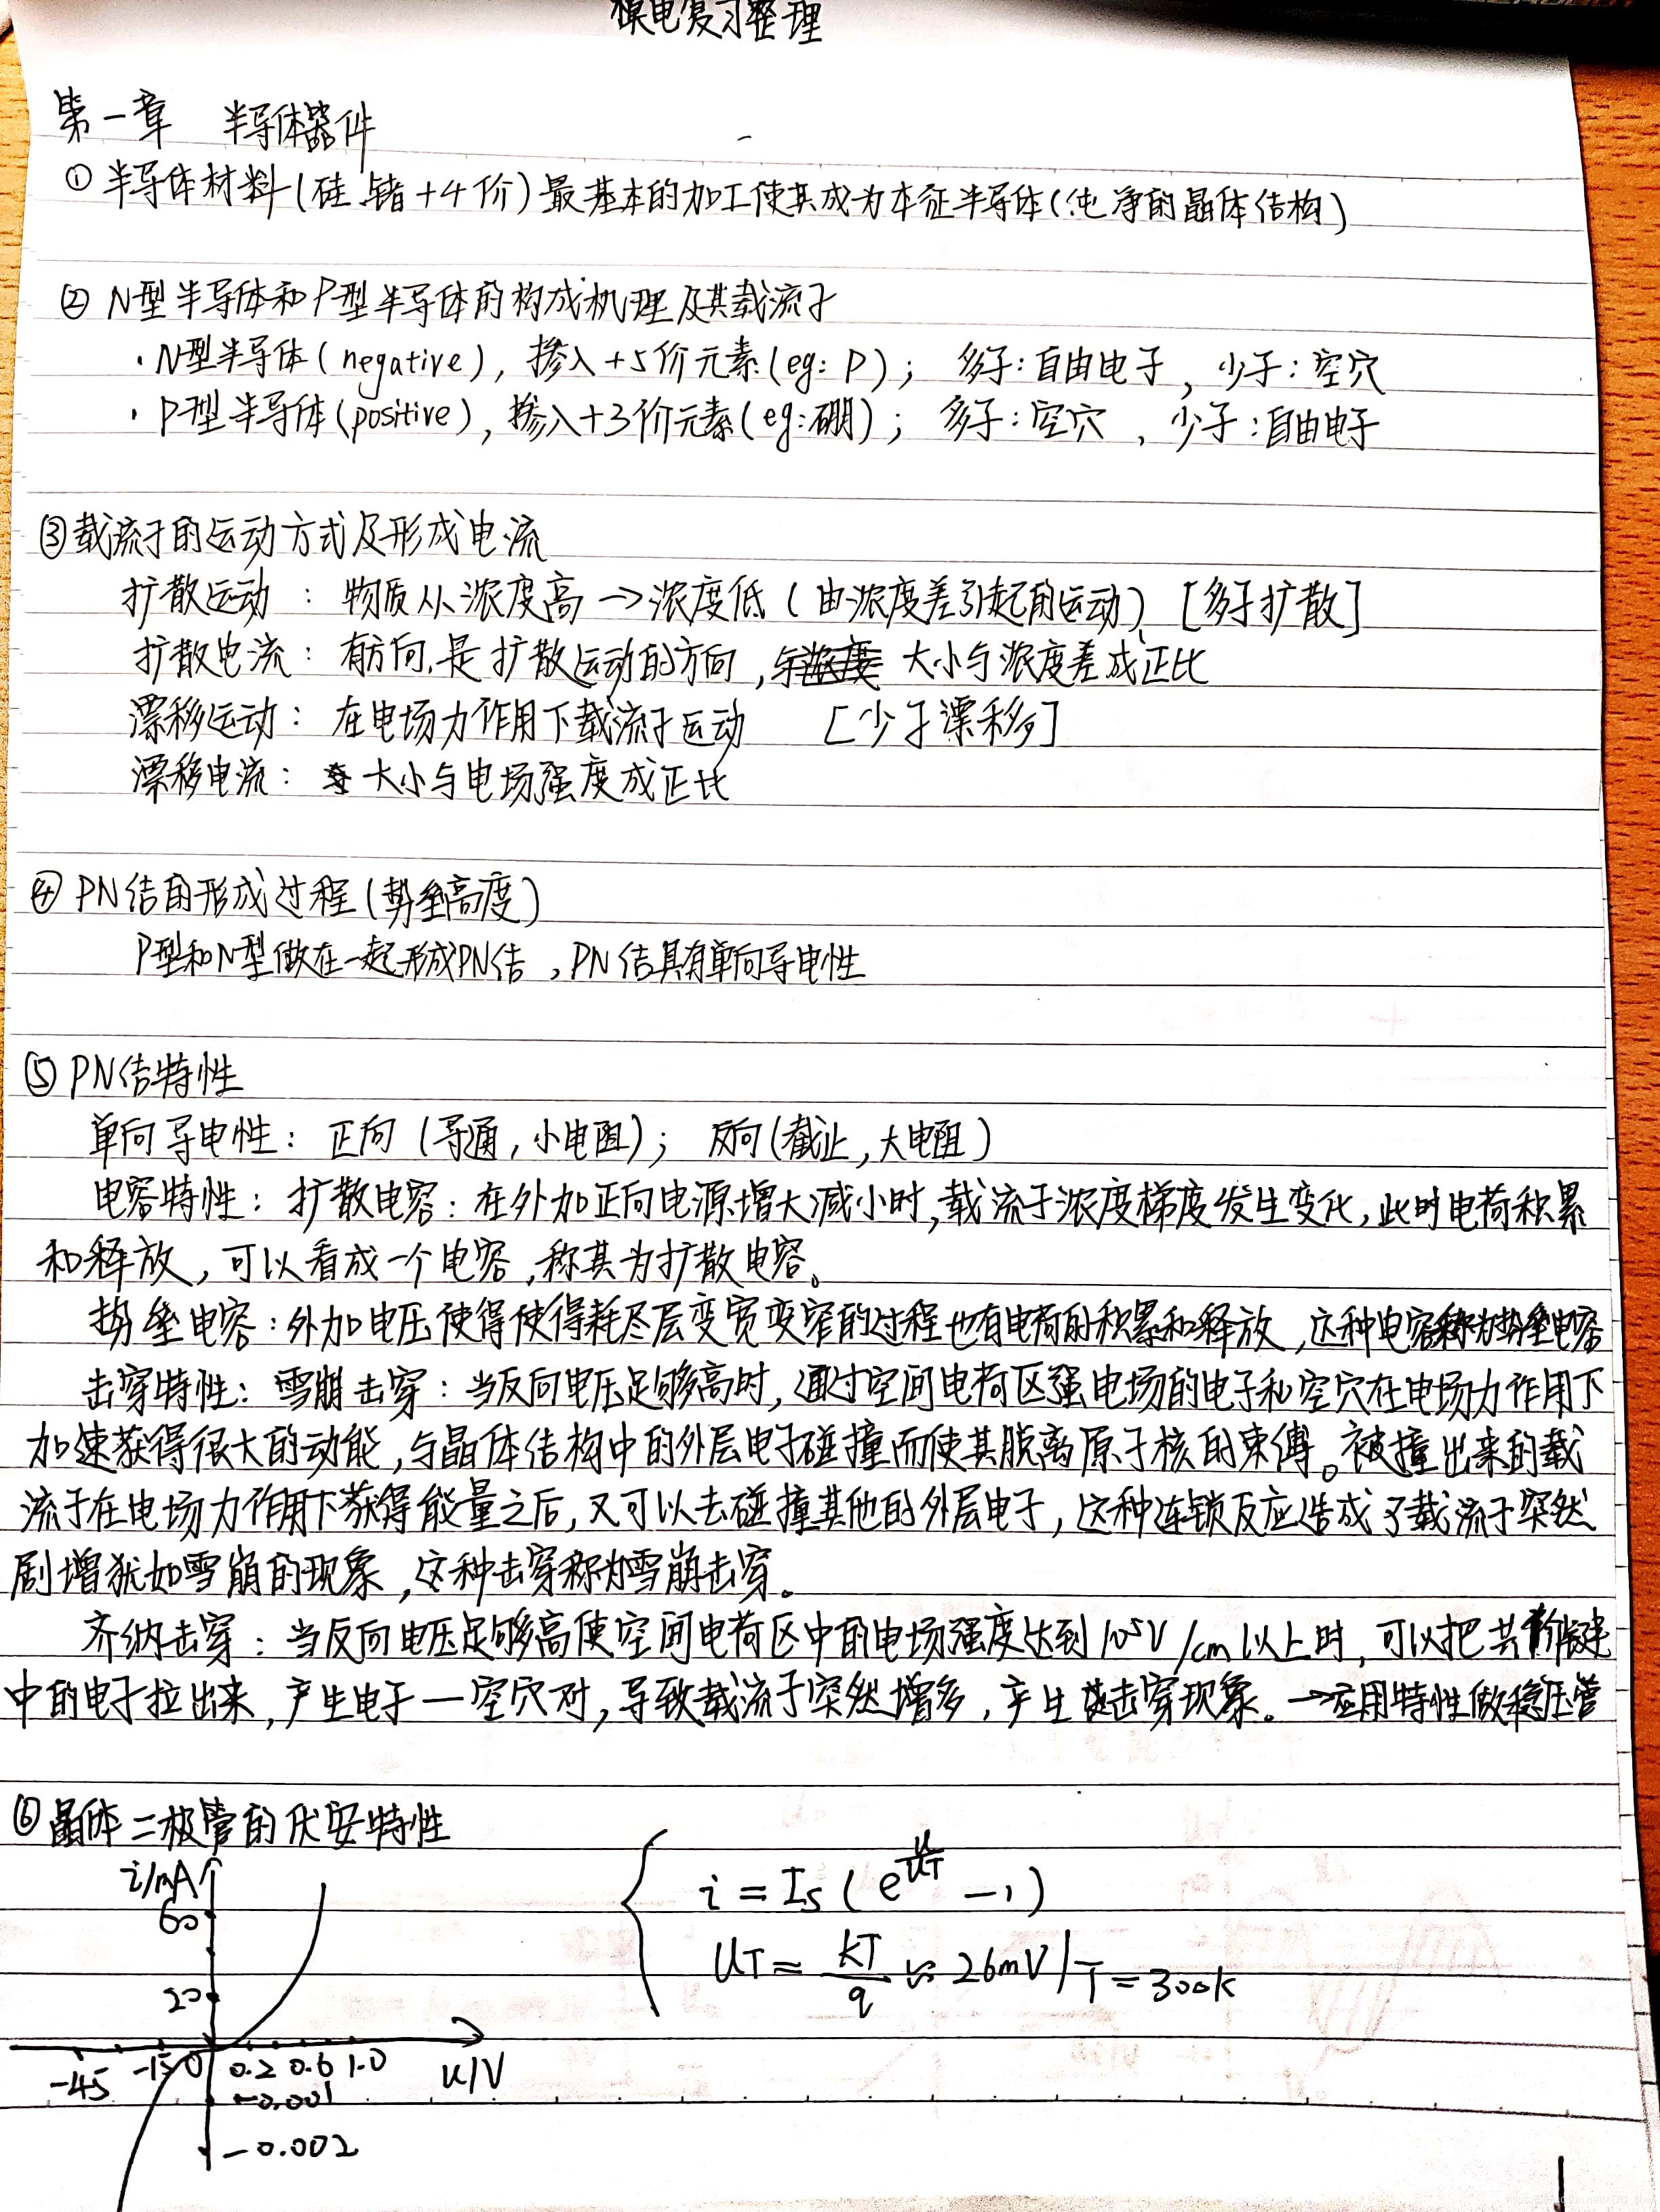 模电复习整理
第一章 半导体器件
① 半导体材料(硅、锗+4价)最基本的加工使其成为本征半导体(纯净的晶体结构)
② N型半导体和P型半导体的构成机理及其载流子
· N型半导体(negative), 掺入+5价元素(eg: P); 多子:自由电子, 少子:空穴
· P型半导体(positive), 掺入+3价元素(eg:硼); 多子:空穴, 少子:自由电子
③载流子的运动方式及形成电流
扩散运动: 物质从浓度高→浓度低(由浓度差引起的运动) [多子扩散]
扩散电流: 有方向,是扩散运动的方向, 大小与浓度差成正比
漂移运动: 在电场力作用下载流子运动 [少子漂移]
漂移电流: 大小与电场强度成正比
④ PN结的形成过程(势垒高度)
P型和N型做在一起形成PN结,PN结具有单向导电性
⑤ PN结特性
单向导电性: 正向(导通,小电阻); 反向(截止,大电阻)
电容特性: 扩散电容:在外加正向电源增大减小时,载流子浓度梯度发生变化,此时电荷积累
和释放,可以看成一个电容,称其为扩散电容。
势垒电容:外加电压使得使得耗尽层变宽变窄的过程也有电荷的积累和释放,这种电容称为势垒电容
击穿特性: 雪崩击穿:当反向电压足够高时,通过空间电荷区强电场的电子和空穴在电场力作用下
加速获得很大的动能,与晶体结构中的外层电子碰撞而使其脱离原子核的束缚。被撞出来的载
流子在电场力作用下获得能量之后,又可以去碰撞其他的外层电子,这种连锁反应造成了载流子突然
剧增犹如雪崩的现象,这种击穿称为雪崩击穿。
齐纳击穿:当反向电压足够高使空间电荷区中的电场强度达到10⁵V/cm以上时,可以把共价键
中的电子拉出来,产生电子—空穴对,导致载流子突然增多,产生击穿现象。→应用特性做稳压管
⑥ 晶体二极管的伏安特性
i/mA
60
20
-45 -15 0 0.2 0.6 1.0 u/V
-0.001
-0.002
i = Is (e^(u/UT) -1)
UT = kT/q ≈ 26mV | T=300K